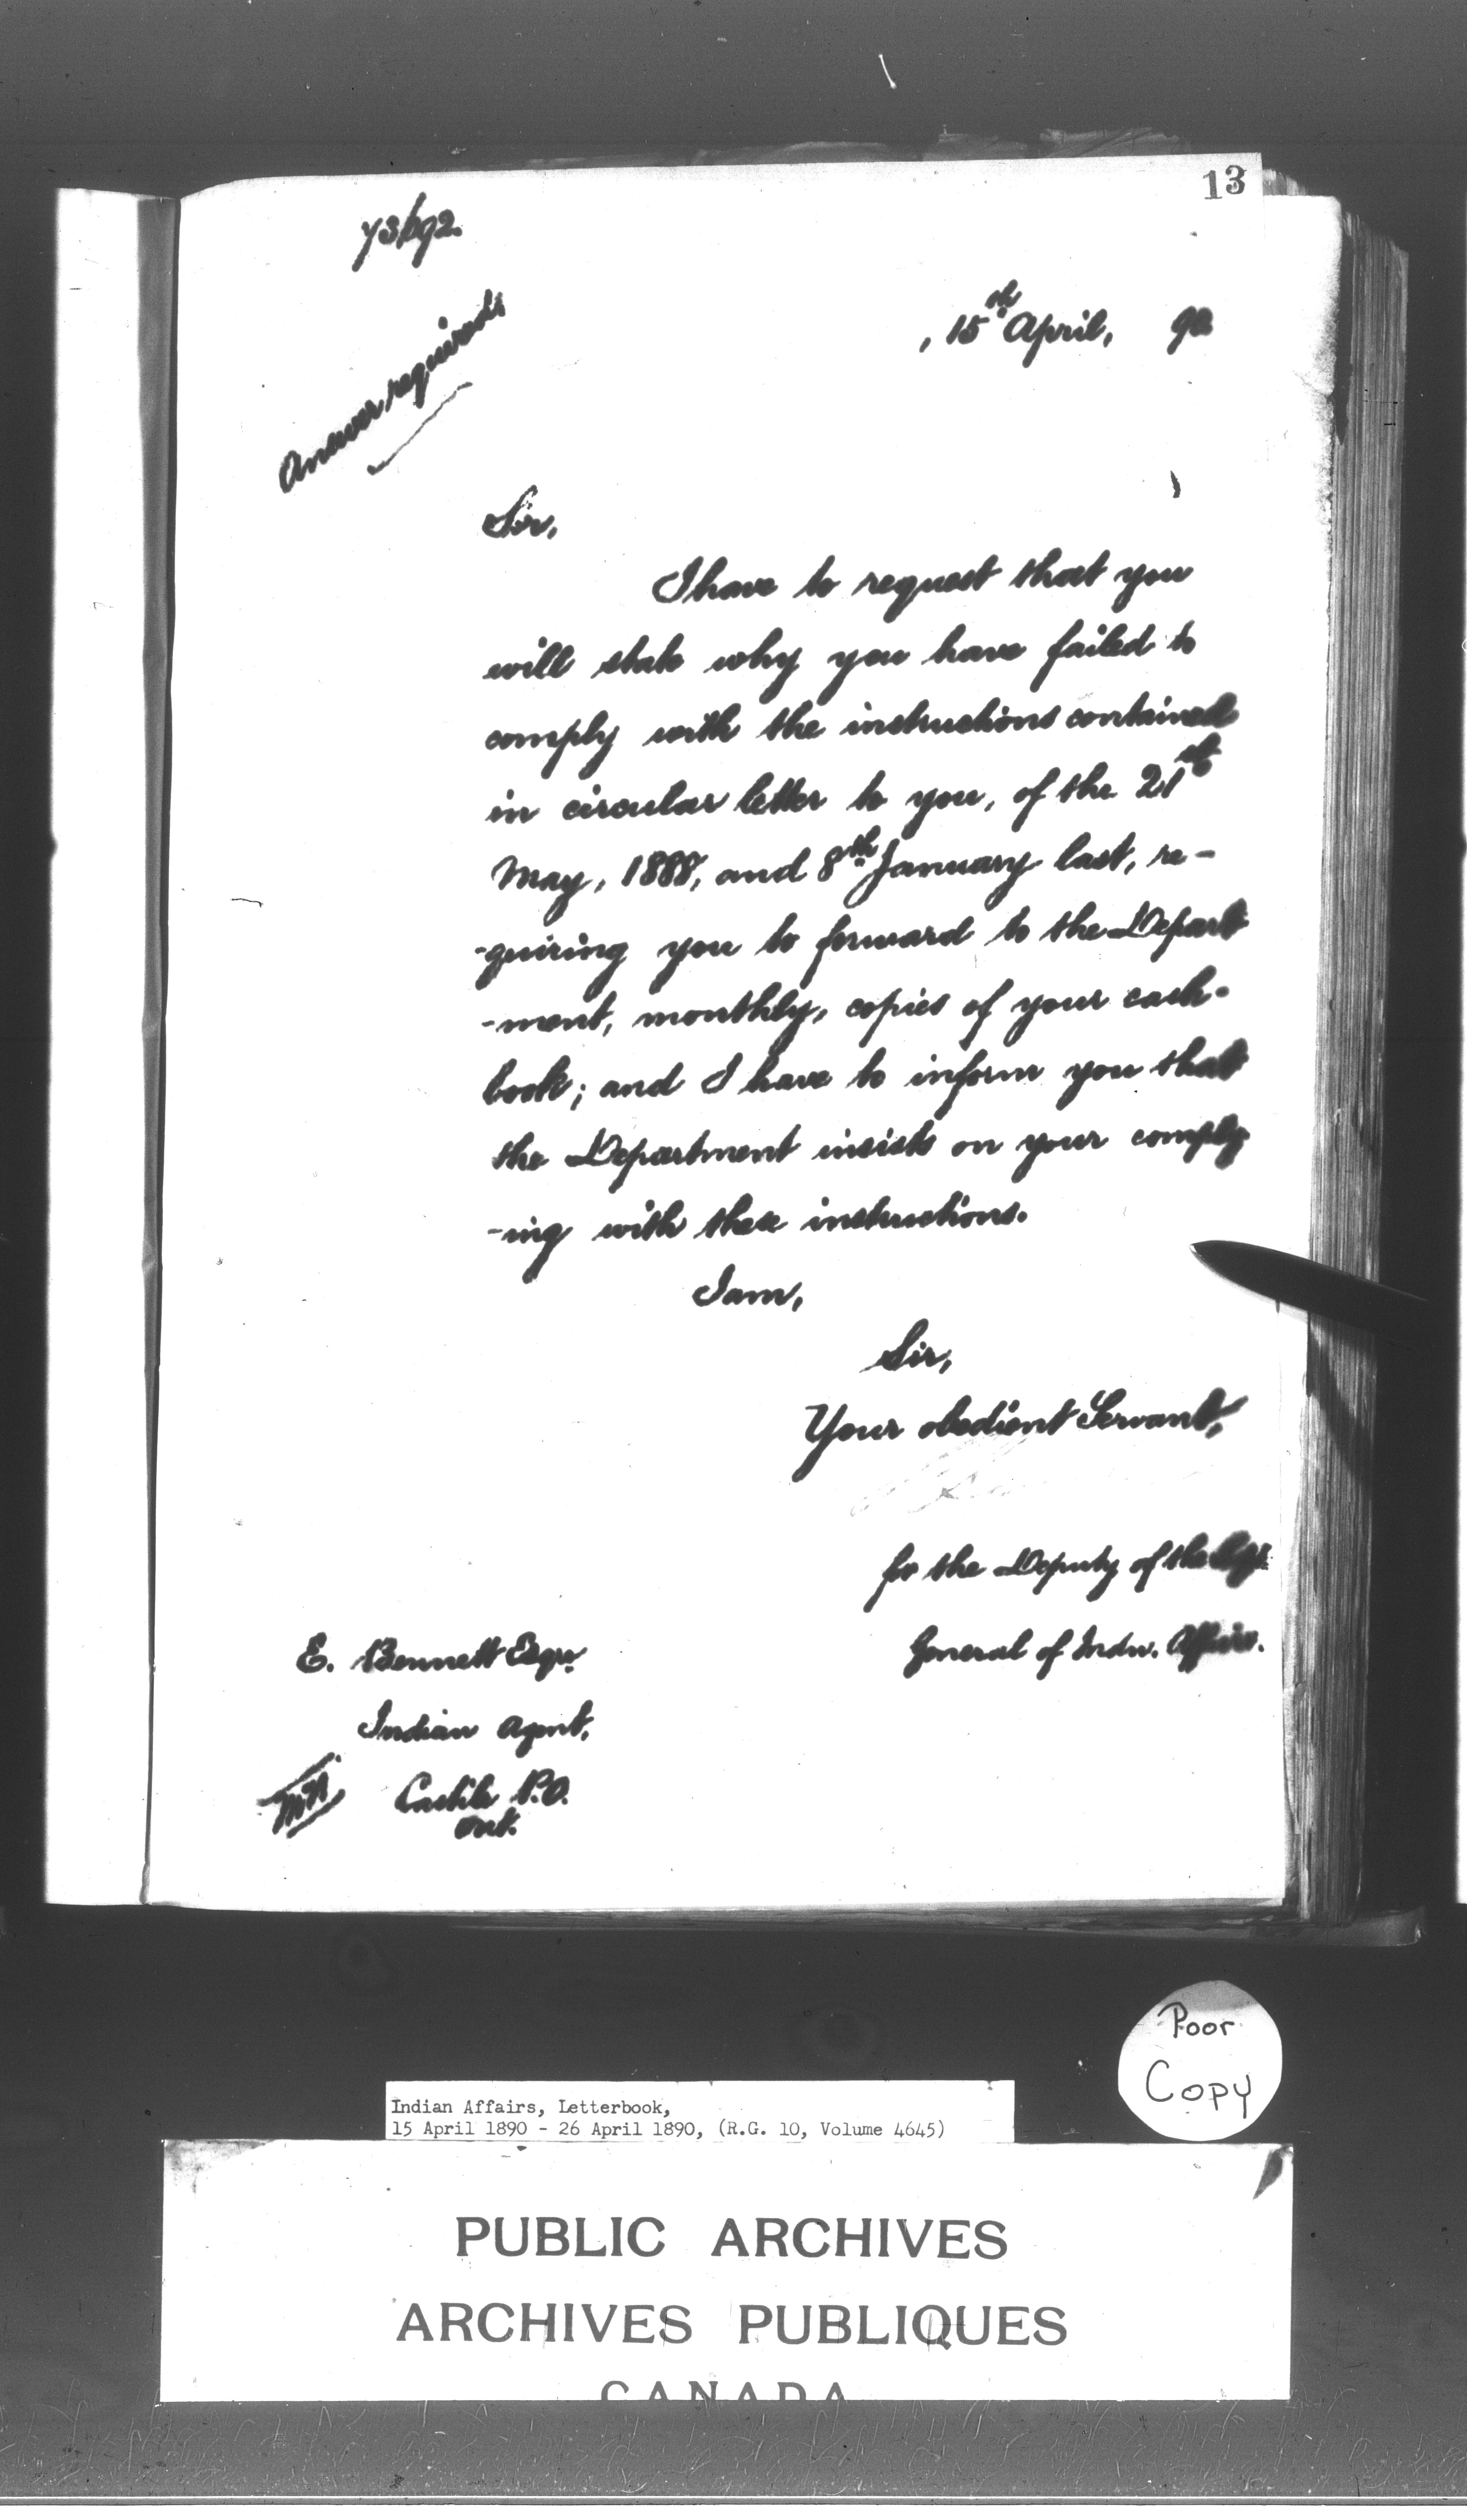 13
Answer required
, 15th April, 90
Sir,
I have to request that you
will state why you have failed to
comply with the instructions contained
in circular letter to you, of the 21st
May, 1888, and 8th January last, re-
-quiring you to forward to the Depart
-ment, monthly, copies of your cash-
book; and I have to inform you that
the Department insists on your comply
-ing with these instructions.
I am,
Sir,
Your obedient Servant,
for the Deputy of the
General of Indn. Affairs.
E. Bennett Esqre.
Indian Agent,
P.O.
Ont.
Poor
Copy
Indian Affairs, Letterbook,
15 April 1890 - 26 April 1890, (R.G. 10, Volume 4645)
PUBLIC ARCHIVES
ARCHIVES PUBLIQUES
CANADA